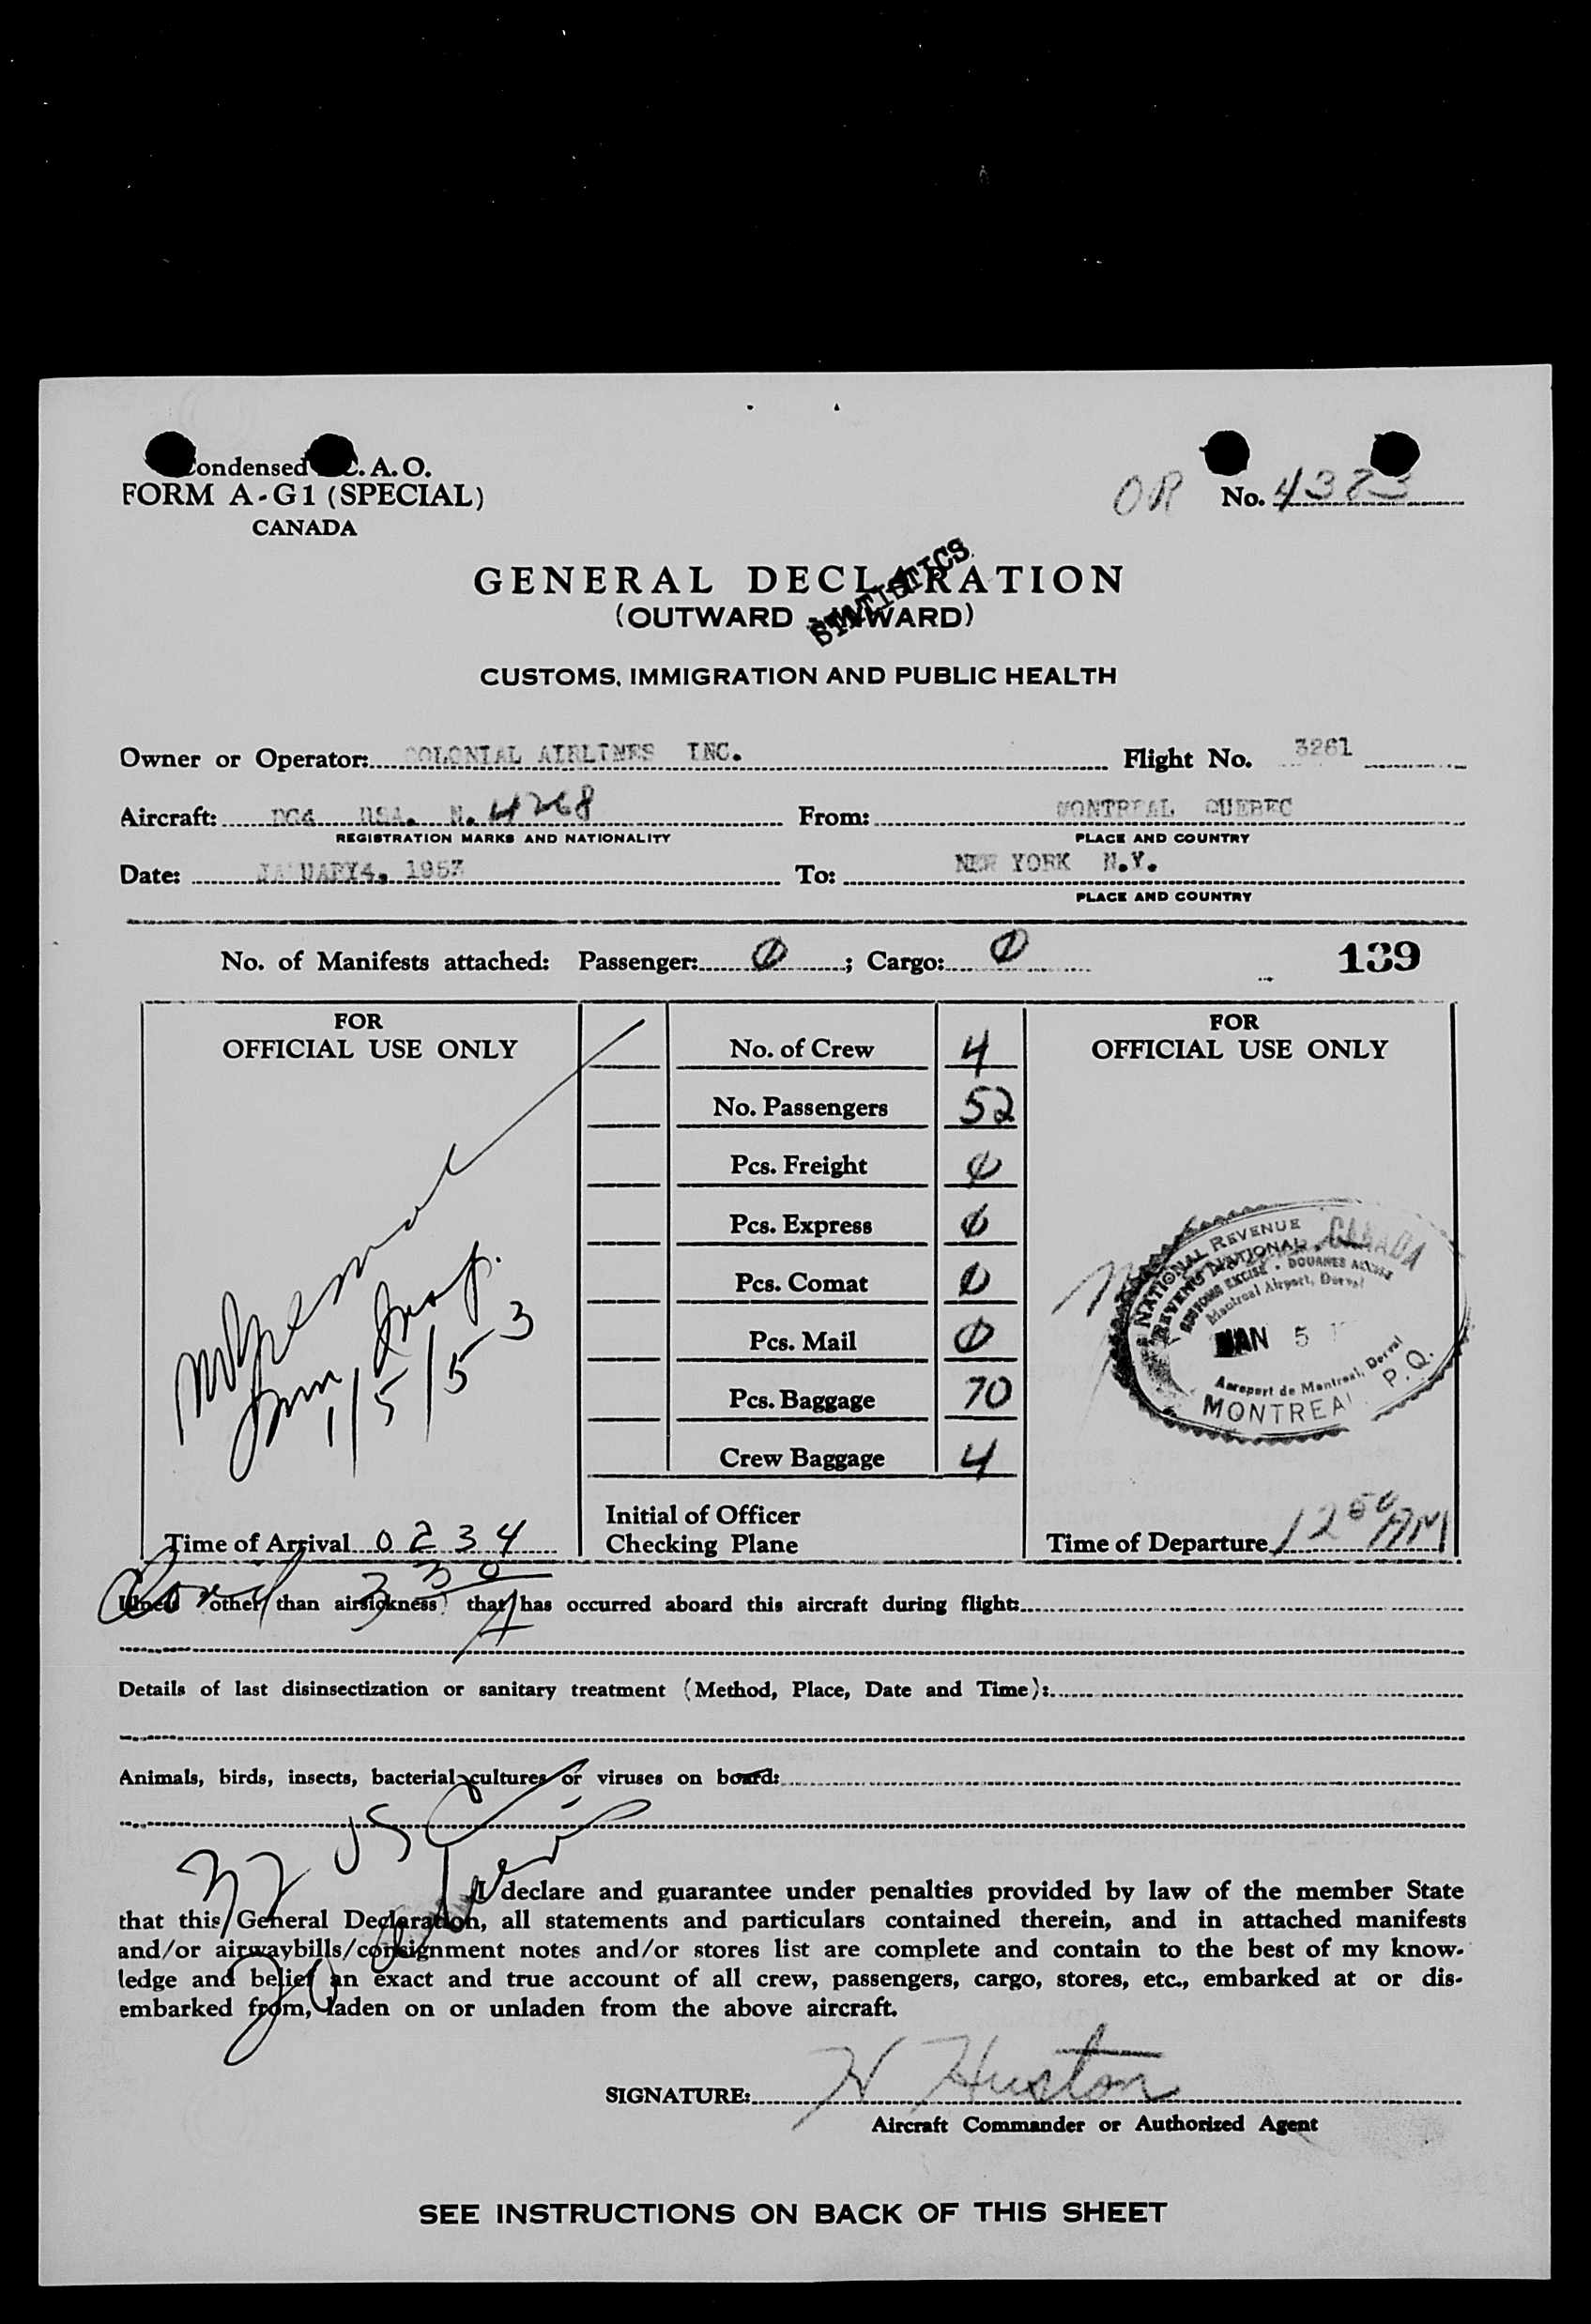 Condensed I.C.A.O.
FORM A-G1 (SPECIAL)
CANADA
OR No. 4373
GENERAL DECLARATION
STATISTICS
(OUTWARD - INWARD)
CUSTOMS, IMMIGRATION AND PUBLIC HEALTH
Owner or Operator: COLONIAL AIRLINES INC. Flight No. 3261
Aircraft: DC4 USA. N. 4268 From: MONTREAL QUEBEC
REGISTRATION MARKS AND NATIONALITY PLACE AND COUNTRY
Date: JANUARY4, 1953 To: NEW YORK N.Y.
PLACE AND COUNTRY
No. of Manifests attached: Passenger: 0; Cargo: 0 139
FOR
OFFICIAL USE ONLY
Imm. Insp.
1/5/53
Time of Arrival 0234
No. of Crew 4
No. Passengers 52
Pcs. Freight 0
Pcs. Express 0
Pcs. Comat 0
Pcs. Mail 0
Pcs. Baggage 70
Crew Baggage 4
Initial of Officer
Checking Plane
FOR
OFFICIAL USE ONLY
NATIONAL REVENUE CANADA
REVENU NATIONAL
CUSTOMS EXCISE - DOUANES ACCISE
Montreal Airport, Dorval
JAN 5
Aeroport de Montreal, Dorval
MONTREAL P.Q.
Time of Departure 12 50 AM
330 A
Illness (other than airsickness) that has occurred aboard this aircraft during flight:
Details of last disinsectization or sanitary treatment (Method, Place, Date and Time):
Animals, birds, insects, bacterial cultures or viruses on board:
32 USC
I declare and guarantee under penalties provided by law of the member State
that this General Declaration, all statements and particulars contained therein, and in attached manifests
and/or airwaybills/consignment notes and/or stores list are complete and contain to the best of my know-
ledge and belief an exact and true account of all crew, passengers, cargo, stores, etc., embarked at or dis-
embarked from, laden on or unladen from the above aircraft.
SIGNATURE: H Huston
Aircraft Commander or Authorized Agent
SEE INSTRUCTIONS ON BACK OF THIS SHEET